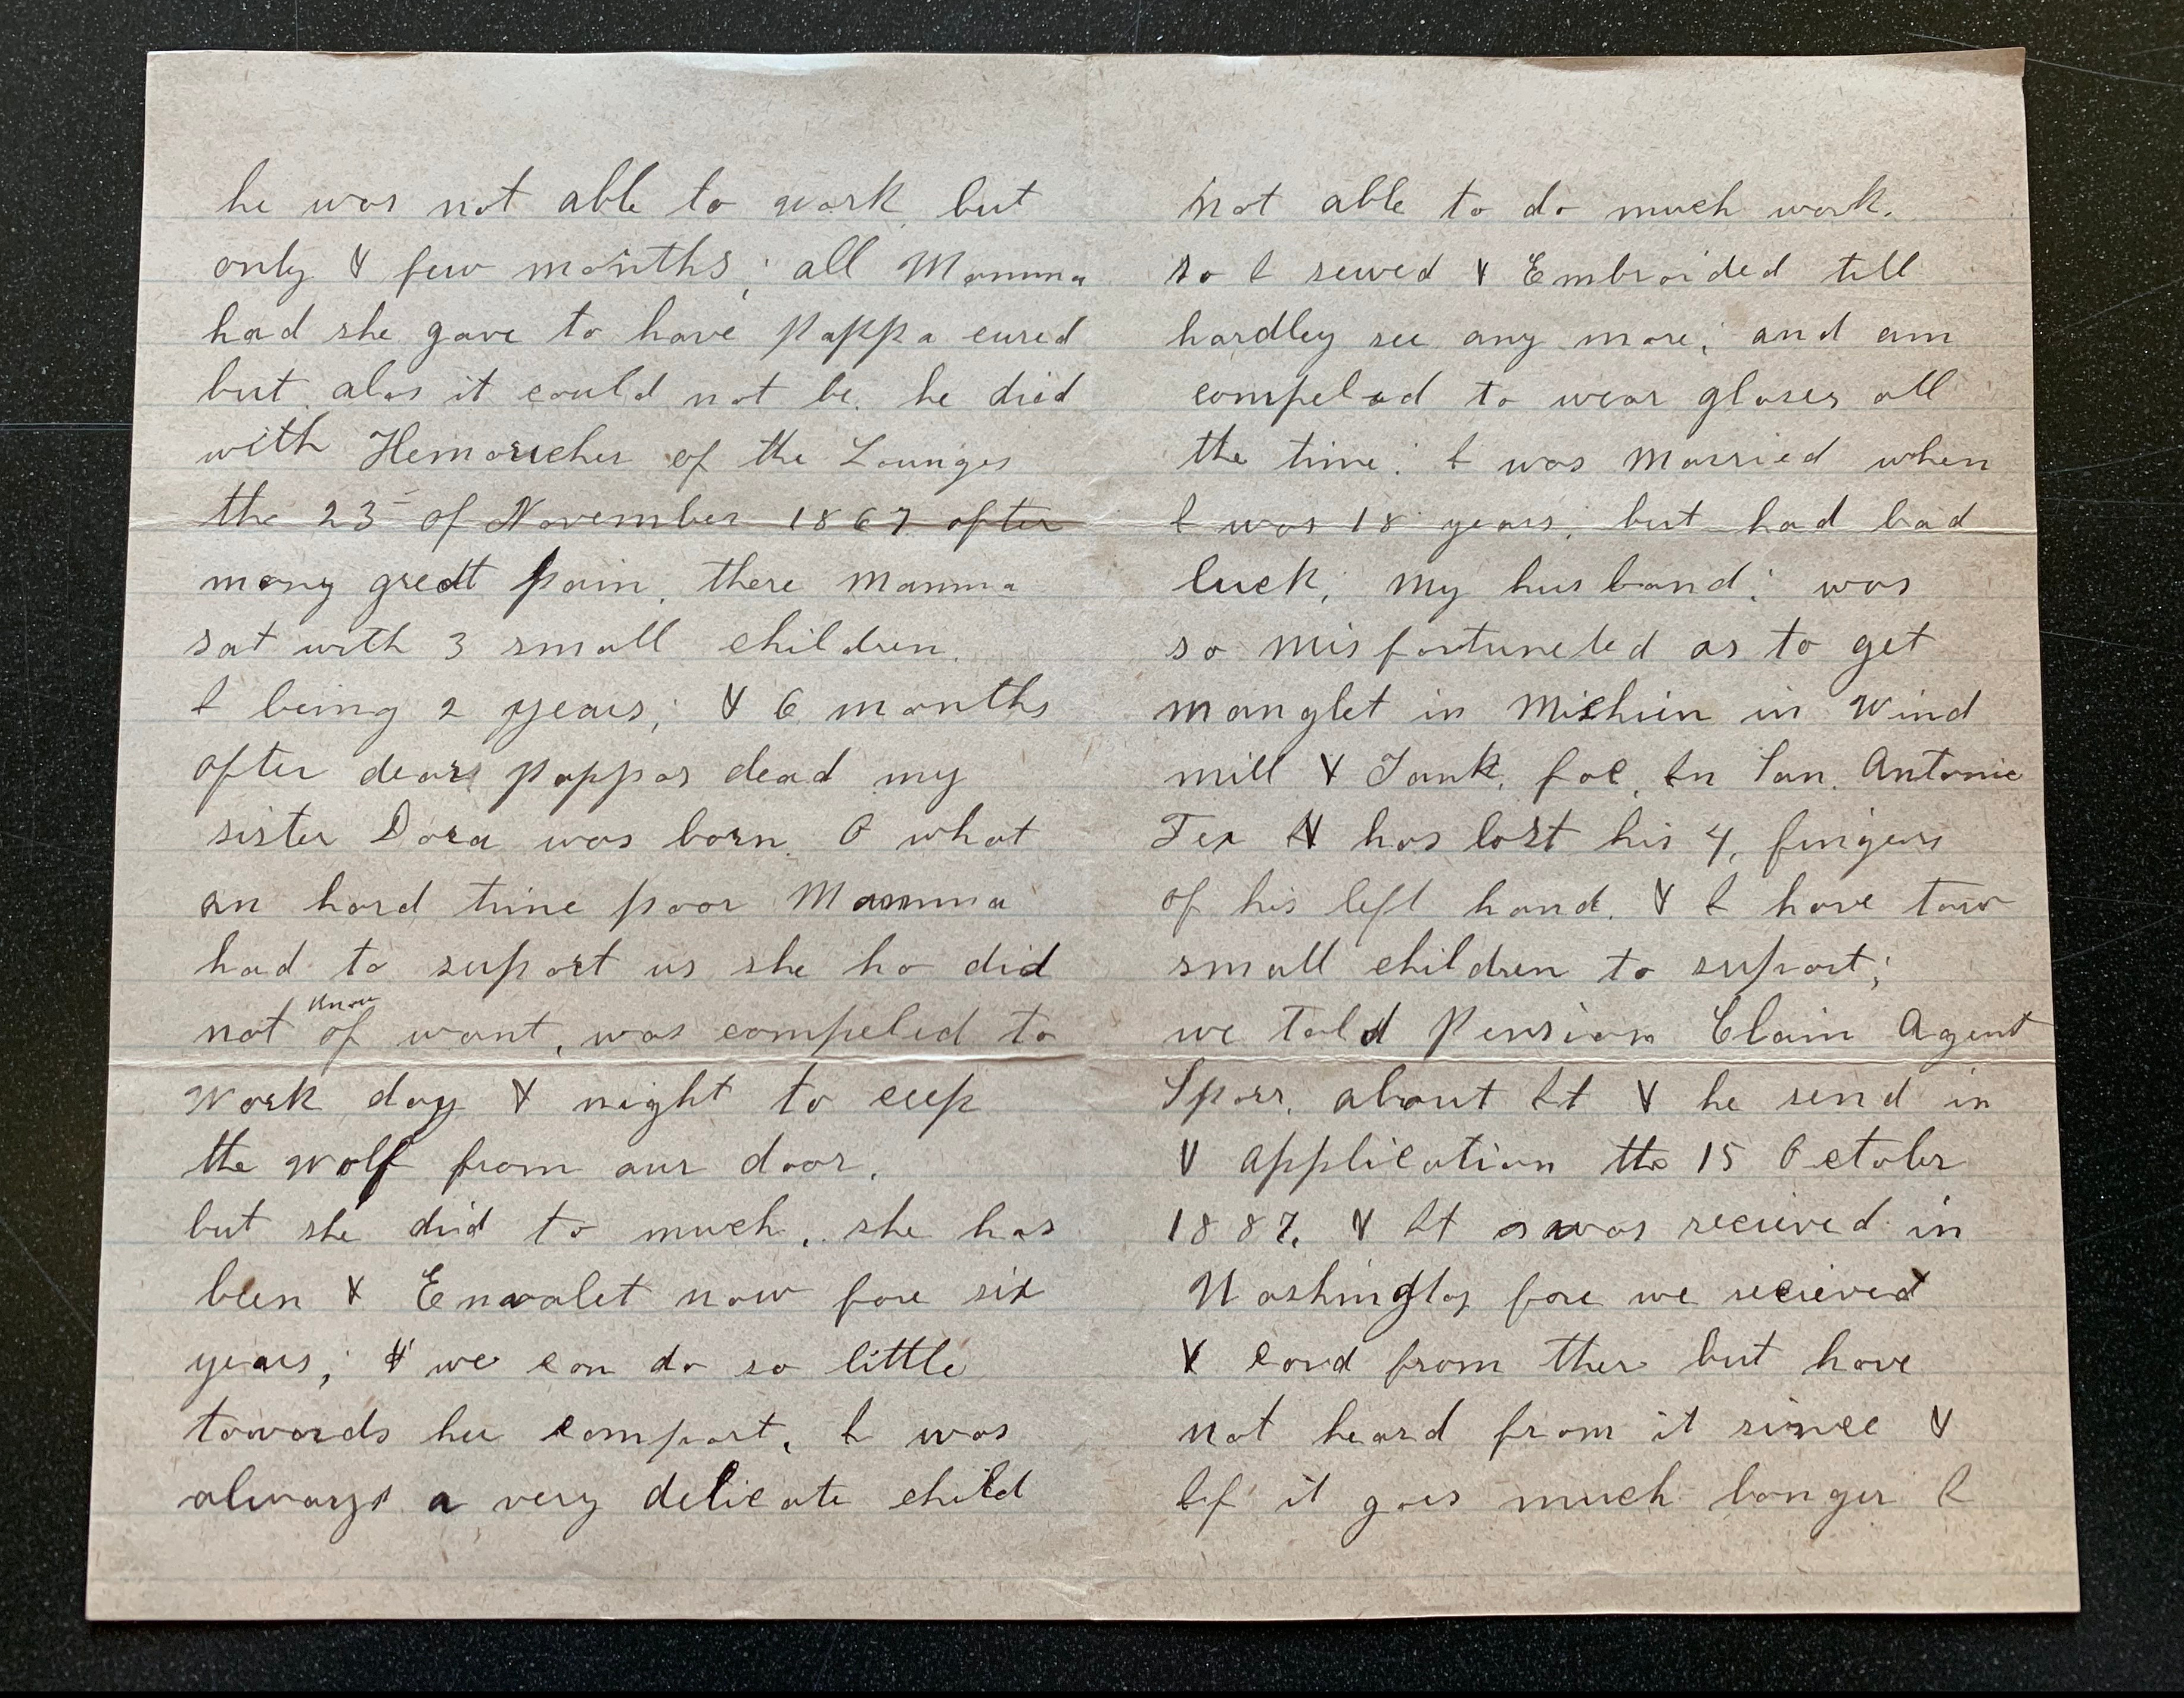 he was not able to work but
only & few months; all Mamma
had she gave to have pappa cured
but alas it could not be. he died
with Hemoricher of the Lounges
the 23 of November 1867 after
many great pain. there mamma
sat with 3 small children.
I being 2 years; & 6 months
after dears pappas dead my
sister Dora was born. O what
an hard time poor Mamma
had to suport us she ho did
not know of want, was compeled to
work day & night to ceep
the wolf from our door.
but she did to much, she has
been & Envalet now fore six
years; & we can do so little
towards her comfort, I was
always a very delicate child
not able to do much work.
so I sewed & Embroided till
hardley see any more; and am
compeled to wear glases all
the time. I was Married when
I was 18 years; but had bad
luck; my husband; was
so misfortuneted as to get
manglet in Michien in Wind
mill & Tank, foc, In San. Antonio
Tex & has lost his 4, fingers
of his left hand. & I have tow
small children to suport;
we told Pension Claim Agent
about It & he send in
& application the 15 October
1887, & It was recieved in
Washington fore we recieved
& card from ther but have
not heard from it since &
If it goes much longer I